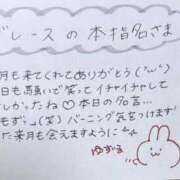 ブレースの本指名さま
月も来てくれてありがとう(˘ω˘)
日も高願いで笑ってイチャイチャして
しかったね♡本日の名言…
もず…(笑)バーニング気をつけます!
た来月も会えますように
ゆずは